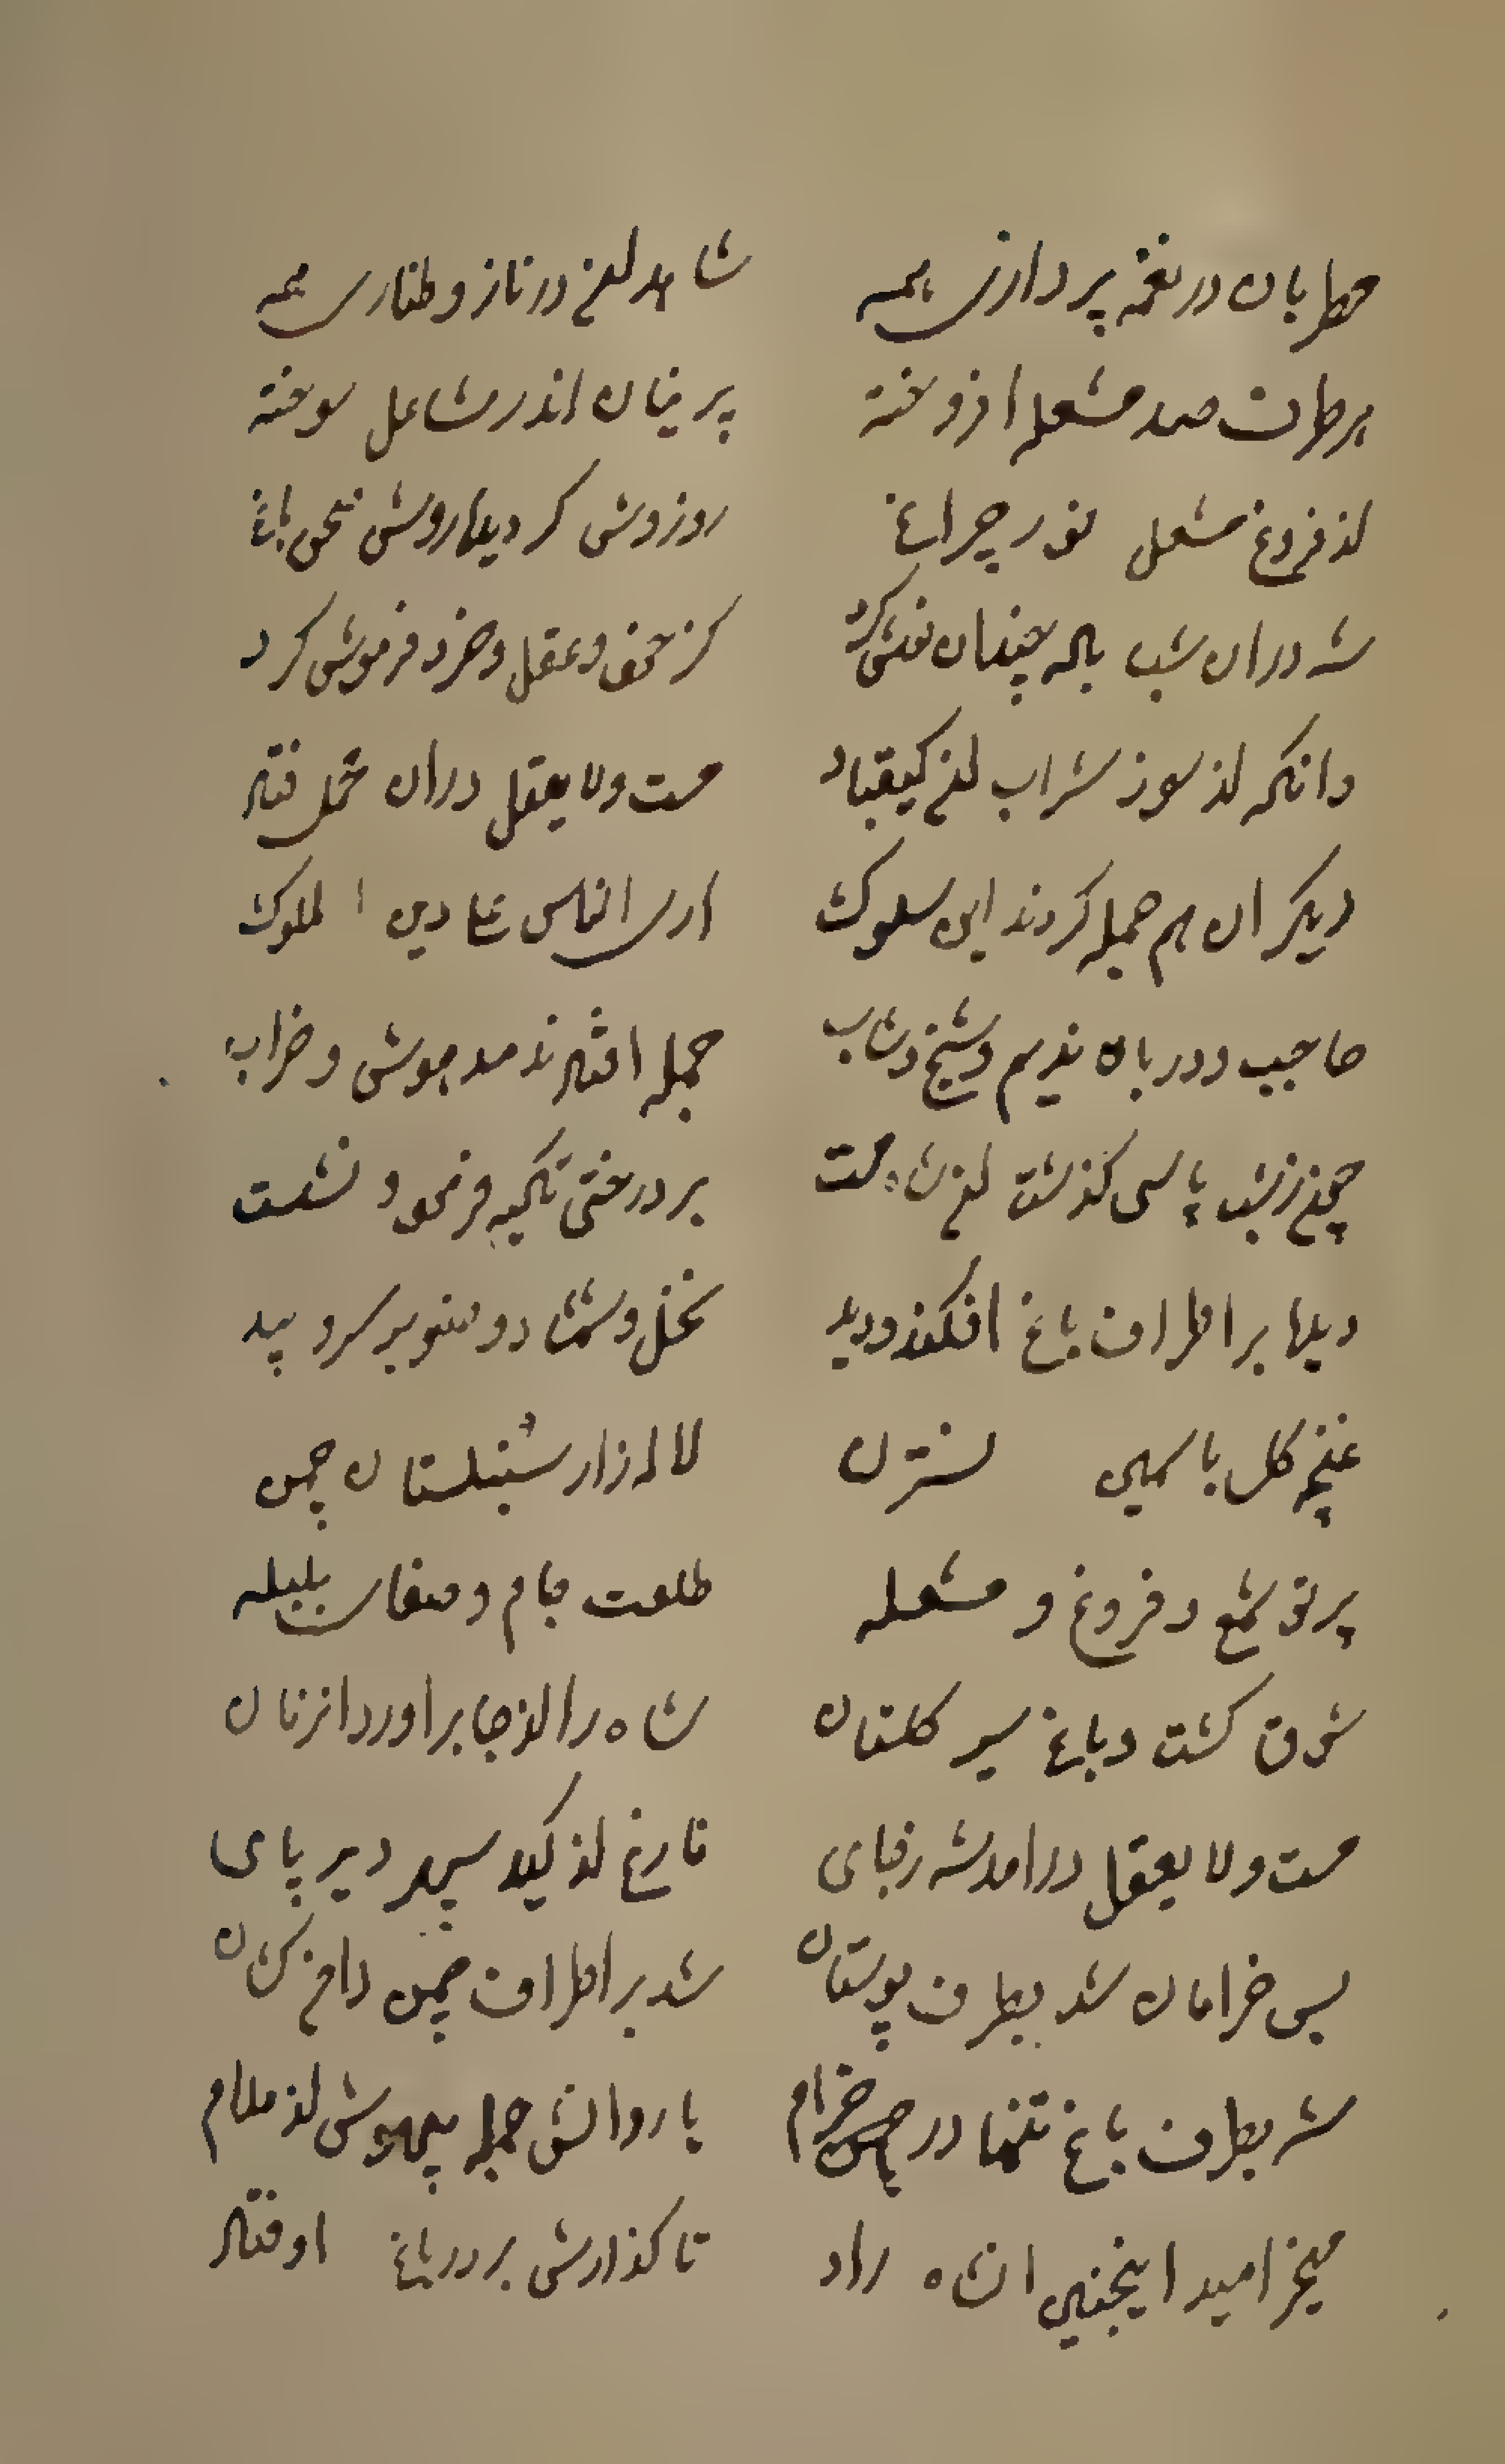 مطربان در نغمه پردازی همه شاهدان در ناز و طنازی همه
هر طرف صد مشعله افروخته پرنیان اندر مشاعل سوخته
از فروغ مشعل نور چراغ روز روشن کرد دیدار وش صحن باغ
شه دران شب باده چندان نوش کرد کز خود و عقل و خرد فرموش کرد
وانکه از سوز شراب ان کیقباد مست و لا یعقل دران محفل فتاد
دیکران هم جمله کردند این سلوک اری الناس علی دین الملوک
حاجب و دربان ندیم و شیخ و شاب جمله افتادند مدهوش و خراب
چون ز شب پاسی کذشت ان شاه مست بر درختی تکیه فرمود نشست
دیده بر اطراف باغ افکند و دید نخل و شمشاد و صنوبر سرو بید
غنچه کل یاسمین نسترن لاله زار سنبلستان چمن
پرتو شمع و فروغ و مشعله طلعت جام و صفای بلبله
شوق کشت و باغ سیر کلستان شاه را از جا براورد انزمان
مست و لا یعقل درامد شه ز جای فارغ از کید سپهر دیر پای
بس خرامان شد بطرف بوستان شد بر اطراف چمن دامن کشان
شه بطرف باغ تنها در خرام یاروانش جمله بیهوش از مدام
میخرامید اینچنین ان شاه راد تا کذارش بر در باغ اوفتاد